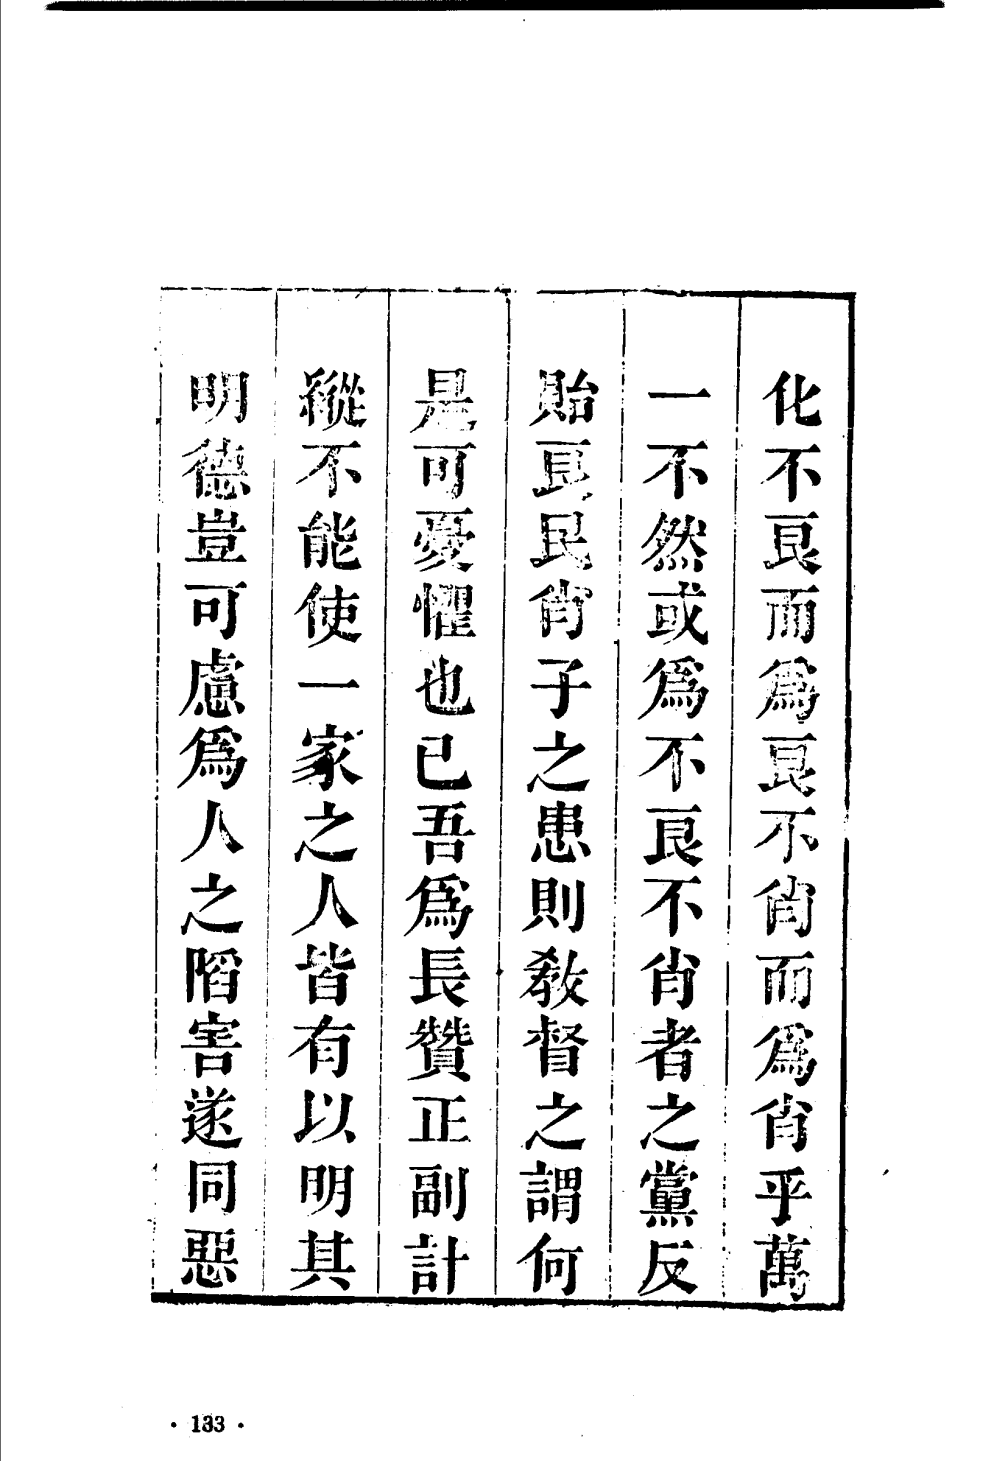 化不良而爲良不肖而爲肖乎萬
一不然或爲不良不肖者之黨反
貽良民肖子之患則教督之謂何
是可憂懼也已吾爲長贊正副計
縱不能使一家之人皆有以明其
明德豈可慮爲人之䧟害遂同惡
· 133 ·